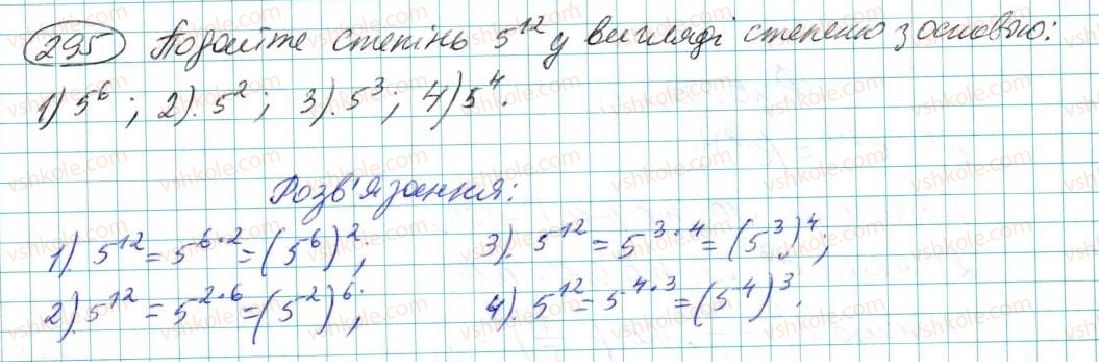 295 Подайте степінь 5^12 у вигляді степеню з основою:
1) 5^6 ; 2). 5^2 ; 3). 5^3 ; 4) 5^4.
Розв'язання:
1). 5^12 = 5^(6·2) = (5^6)^2; 3). 5^12 = 5^(3·4) = (5^3)^4;
2). 5^12 = 5^(2·6) = (5^2)^6; 4). 5^12 = 5^(4·3) = (5^4)^3.
vshkole.com